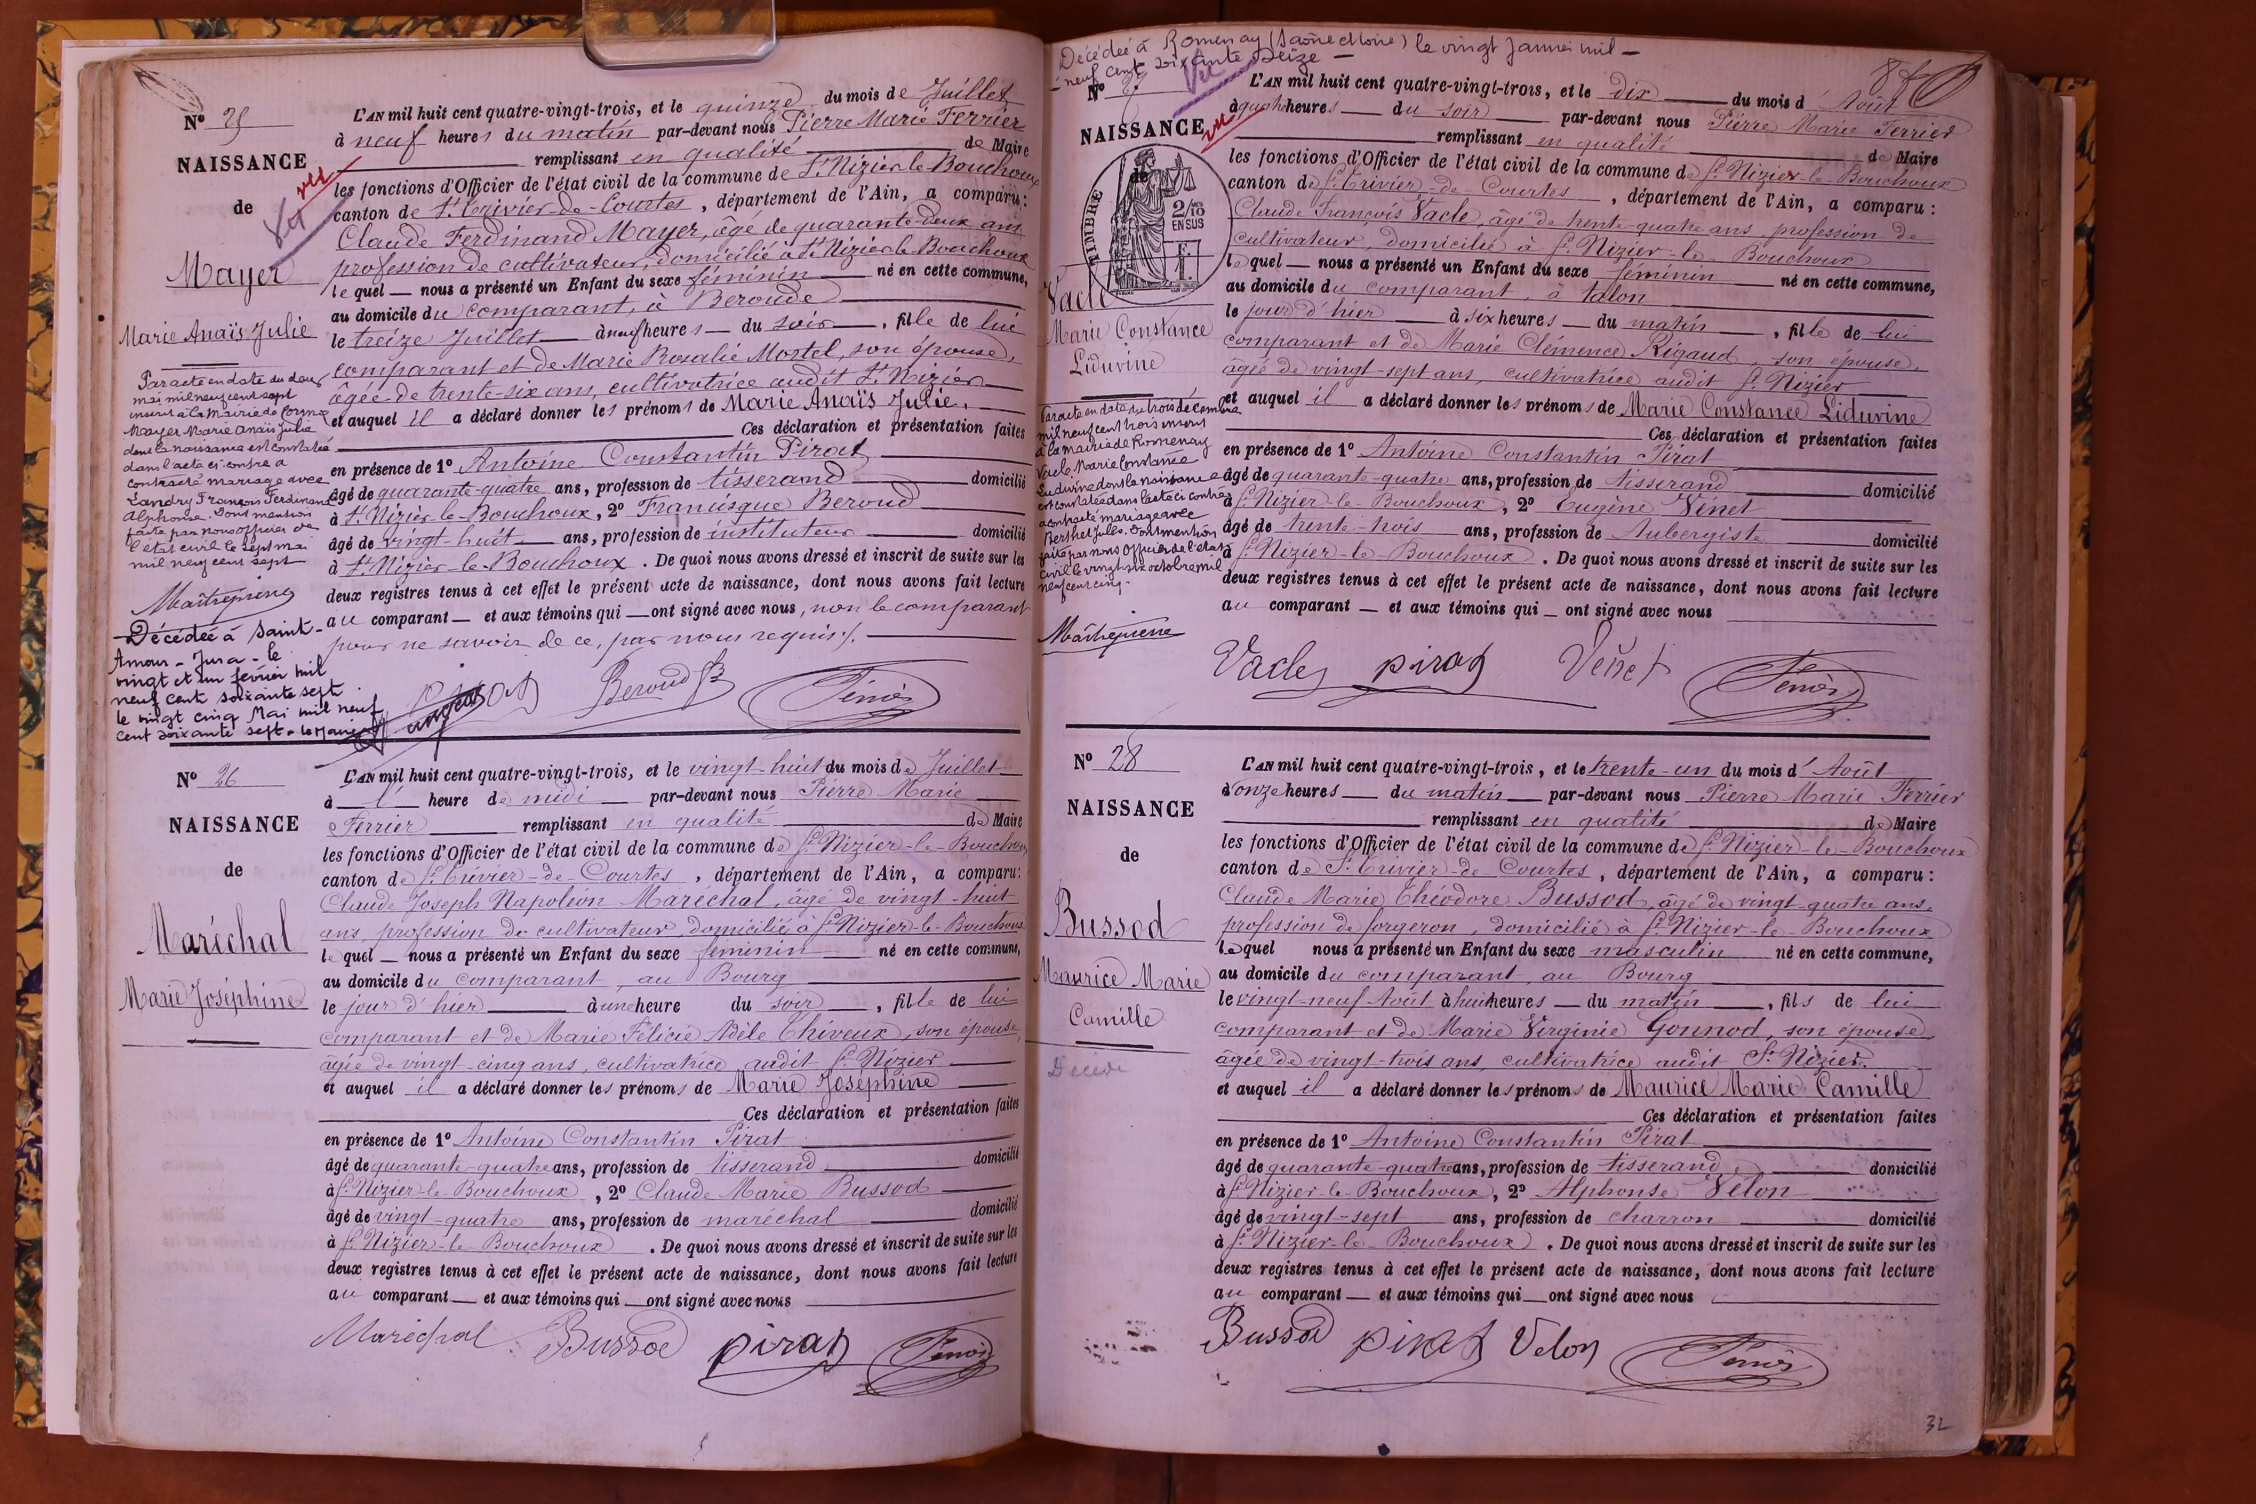 Nº 25
NAISSANCE
de
Mayer
Marie Anaïs Julie
Par acte en date du deux
mai mil neuf cent sept
inscrit à la Mairie de
Mayer Marie Anaïs Julie
dont la naissance est constatée
dans l'acte ci-contre a
contracté mariage avec
Landry François Ferdinand
Alphonse. Dont mention
faite par nous officier de
l'état civil le sept mai
mil neuf cent sept
Maîtrepierre
Décédée à Saint-
Amour - Jura - le
vingt et un février mil
neuf cent soixante sept
le vingt cinq Mai mil neuf
cent soixante sept - le Maire
vu
L'AN mil huit cent quatre-vingt-trois, et le quinze du mois de Juillet
à neuf heures du matin par-devant nous Pierre Marie Ferrier
remplissant en qualité de Maire
les fonctions d'Officier de l'état civil de la commune de St Nizier-le-Bouchoux
canton de St Trivier-de-Courtes, département de l'Ain, a comparu :
Claude Ferdinand Mayer, âgé de quarante-deux ans
profession de cultivateur, domicilié à St Nizier-le-Bouchoux
lequel nous a présenté un Enfant du sexe féminin né en cette commune,
au domicile du comparant, à Beroude
le treize Juillet à neuf heures du soir, fille de lui
comparant et de Marie Rosalie Mortel, son épouse,
âgée de trente-six ans, cultivatrice audit St Nizier
et auquel il a déclaré donner les prénoms de Marie Anaïs Julie.
Ces déclaration et présentation faites
en présence de 1º Antoine Constantin Pirat
âgé de quarante-quatre ans, profession de tisserand domicilié
à St Nizier-le-Bouchoux, 2º Francisque Beroud
âgé de vingt-huit ans, profession de instituteur domicilié
à St Nizier-le-Bouchoux. De quoi nous avons dressé et inscrit de suite sur les
deux registres tenus à cet effet le présent acte de naissance, dont nous avons fait lecture
au comparant et aux témoins qui ont signé avec nous, non le comparant
pour ne savoir de ce, par nous requis /.
Pirat Beroud Ferrier
Nº 26
NAISSANCE
de
Maréchal
Marie Joséphine
L'AN mil huit cent quatre-vingt-trois, et le vingt-huit du mois de Juillet
à l' heure de midi par-devant nous Pierre Marie
Ferrier remplissant en qualité de Maire
les fonctions d'Officier de l'état civil de la commune de St Nizier-le-Bouchoux
canton de St Trivier-de-Courtes, département de l'Ain, a comparu :
Claude Joseph Napoléon Maréchal, âgé de vingt-huit
ans, profession de cultivateur, domicilié à St Nizier-le-Bouchoux
lequel nous a présenté un Enfant du sexe féminin né en cette commune,
au domicile du comparant, au Bourg
le jour d'hier à une heure du soir, fille de lui
comparant et de Marie Félicie Adèle Thiveux, son épouse,
âgée de vingt-cinq ans, cultivatrice audit St Nizier
et auquel il a déclaré donner les prénoms de Marie Joséphine
Ces déclaration et présentation faites
en présence de 1º Antoine Constantin Pirat
âgé de quarante-quatre ans, profession de tisserand domicilié
à St Nizier-le-Bouchoux, 2º Claude Marie Bussod
âgé de vingt-quatre ans, profession de maréchal domicilié
à St Nizier-le-Bouchoux. De quoi nous avons dressé et inscrit de suite sur les
deux registres tenus à cet effet le présent acte de naissance, dont nous avons fait lecture
au comparant et aux témoins qui ont signé avec nous
Maréchal Bussod Pirat Ferrier
Décédée à Romenay (Saône et Loire) le vingt Janvier mil
neuf cent soixante seize
Nº 27
Vu
NAISSANCE
vu
de
TIMBRE
2/10
EN SUS
Vacle
Marie Constance
Liduvine
Par acte en date du trois décembre
mil neuf cent trois inscrit
à la mairie de Romenay
Vacle Marie Constance
Liduvine dont la naissance
est constatée dans l'acte ci contre
a contracté mariage avec
Berthet Jules. Dont mention
faite par nous Officier de l'état
civil le vingt six octobre mil
neuf cent cinq.
Maîtrepierre
L'AN mil huit cent quatre-vingt-trois, et le dix du mois d'Août
à quatre heures du soir par-devant nous Pierre Marie Ferrier
remplissant en qualité de Maire
les fonctions d'Officier de l'état civil de la commune de St Nizier-le-Bouchoux
canton de St Trivier-de-Courtes, département de l'Ain, a comparu :
Claude François Vacle, âgé de trente-quatre ans profession de
cultivateur, domicilié à St Nizier-le-Bouchoux
lequel nous a présenté un Enfant du sexe féminin né en cette commune,
au domicile du comparant, à talon
le jour d'hier à six heures du matin, fille de lui
comparant et de Marie Clémence Rigaud, son épouse,
âgée de vingt-sept ans, cultivatrice audit St Nizier
et auquel il a déclaré donner les prénoms de Marie Constance Liduvine
Ces déclaration et présentation faites
en présence de 1º Antoine Constantin Pirat
âgé de quarante-quatre ans, profession de tisserand domicilié
à St Nizier-le-Bouchoux, 2º Eugène Vénet
âgé de trente-trois ans, profession de Aubergiste domicilié
à St Nizier-le-Bouchoux. De quoi nous avons dressé et inscrit de suite sur les
deux registres tenus à cet effet le présent acte de naissance, dont nous avons fait lecture
au comparant et aux témoins qui ont signé avec nous
Vacle Pirat Vénet Ferrier
Nº 28
NAISSANCE
de
Bussod
Maurice Marie
Camille
Décédé
L'AN mil huit cent quatre-vingt-trois, et le trente-un du mois d'Août
à onze heures du matin par-devant nous Pierre Marie Ferrier
remplissant en qualité de Maire
les fonctions d'Officier de l'état civil de la commune de St Nizier-le-Bouchoux
canton de St Trivier-de-Courtes, département de l'Ain, a comparu :
Claude Marie Théodore Bussod, âgé de vingt-quatre ans,
profession de forgeron, domicilié à St Nizier-le-Bouchoux
lequel nous a présenté un Enfant du sexe masculin né en cette commune,
au domicile du comparant, au Bourg
le vingt-neuf Août à huit heures du matin, fils de lui
comparant et de Marie Virginie Gonnod, son épouse
âgée de vingt-trois ans, cultivatrice audit St Nizier.
et auquel il a déclaré donner les prénoms de Maurice Marie Camille
Ces déclaration et présentation faites
en présence de 1º Antoine Constantin Pirat
âgé de quarante-quatre ans, profession de tisserand domicilié
à St Nizier-le-Bouchoux, 2º Alphonse Velon
âgé de vingt-sept ans, profession de charron domicilié
à St Nizier-le-Bouchoux. De quoi nous avons dressé et inscrit de suite sur les
deux registres tenus à cet effet le présent acte de naissance, dont nous avons fait lecture
au comparant et aux témoins qui ont signé avec nous
Bussod Pirat Velon Ferrier
32